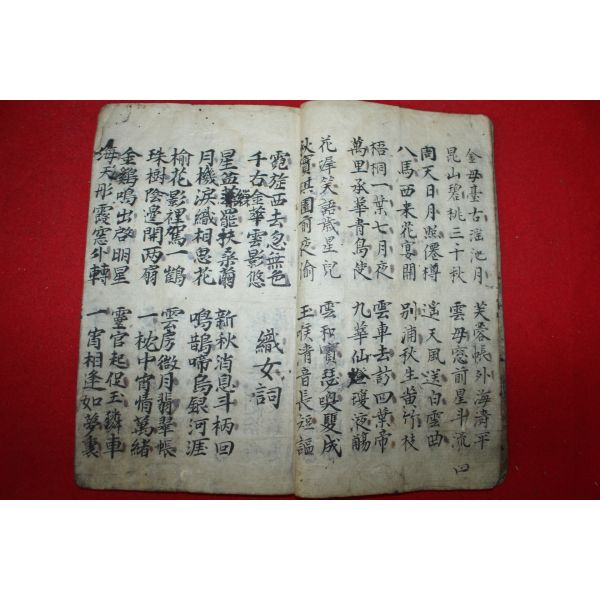 金母臺古瑤池月 芙蓉帳外海濤平
昆山碧桃三千秋 雲母窓前星斗流
周天日月照僊樽 遙天風送白雲曲
八馬西来花宴開 別浦秋生黄竹枝
梧桐一葉七月夜 雲車去訪四葉帝
萬里承華青鳥使 九華仙燈液觴
花笑語歲星兒 雲和寶瑟雙成
秋實園前夜偸 王青音長短謳
四
霓旌西去忽無色
千古金華雲影悠
織女詞
星盆繰罷扶桑繭 新秋消息斗柄回
月機淚織相思花 鳴鵲啼烏銀河涯
榆花影裡駕一鶴 雲房微月翡翠帳
珠樹陰邊開兩扇 一枕中宵情萬緖
金鷄鳴出啓明星 靈官起促玉轔車
海天彤霞窓外轉 一宵相逢如夢裏